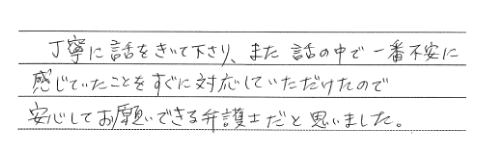 丁寧に話をきいて下さり、また 話の中で一番不安に
感じていたことをすぐに対応していただけたので
安心してお願いできる弁護士だと思いました。